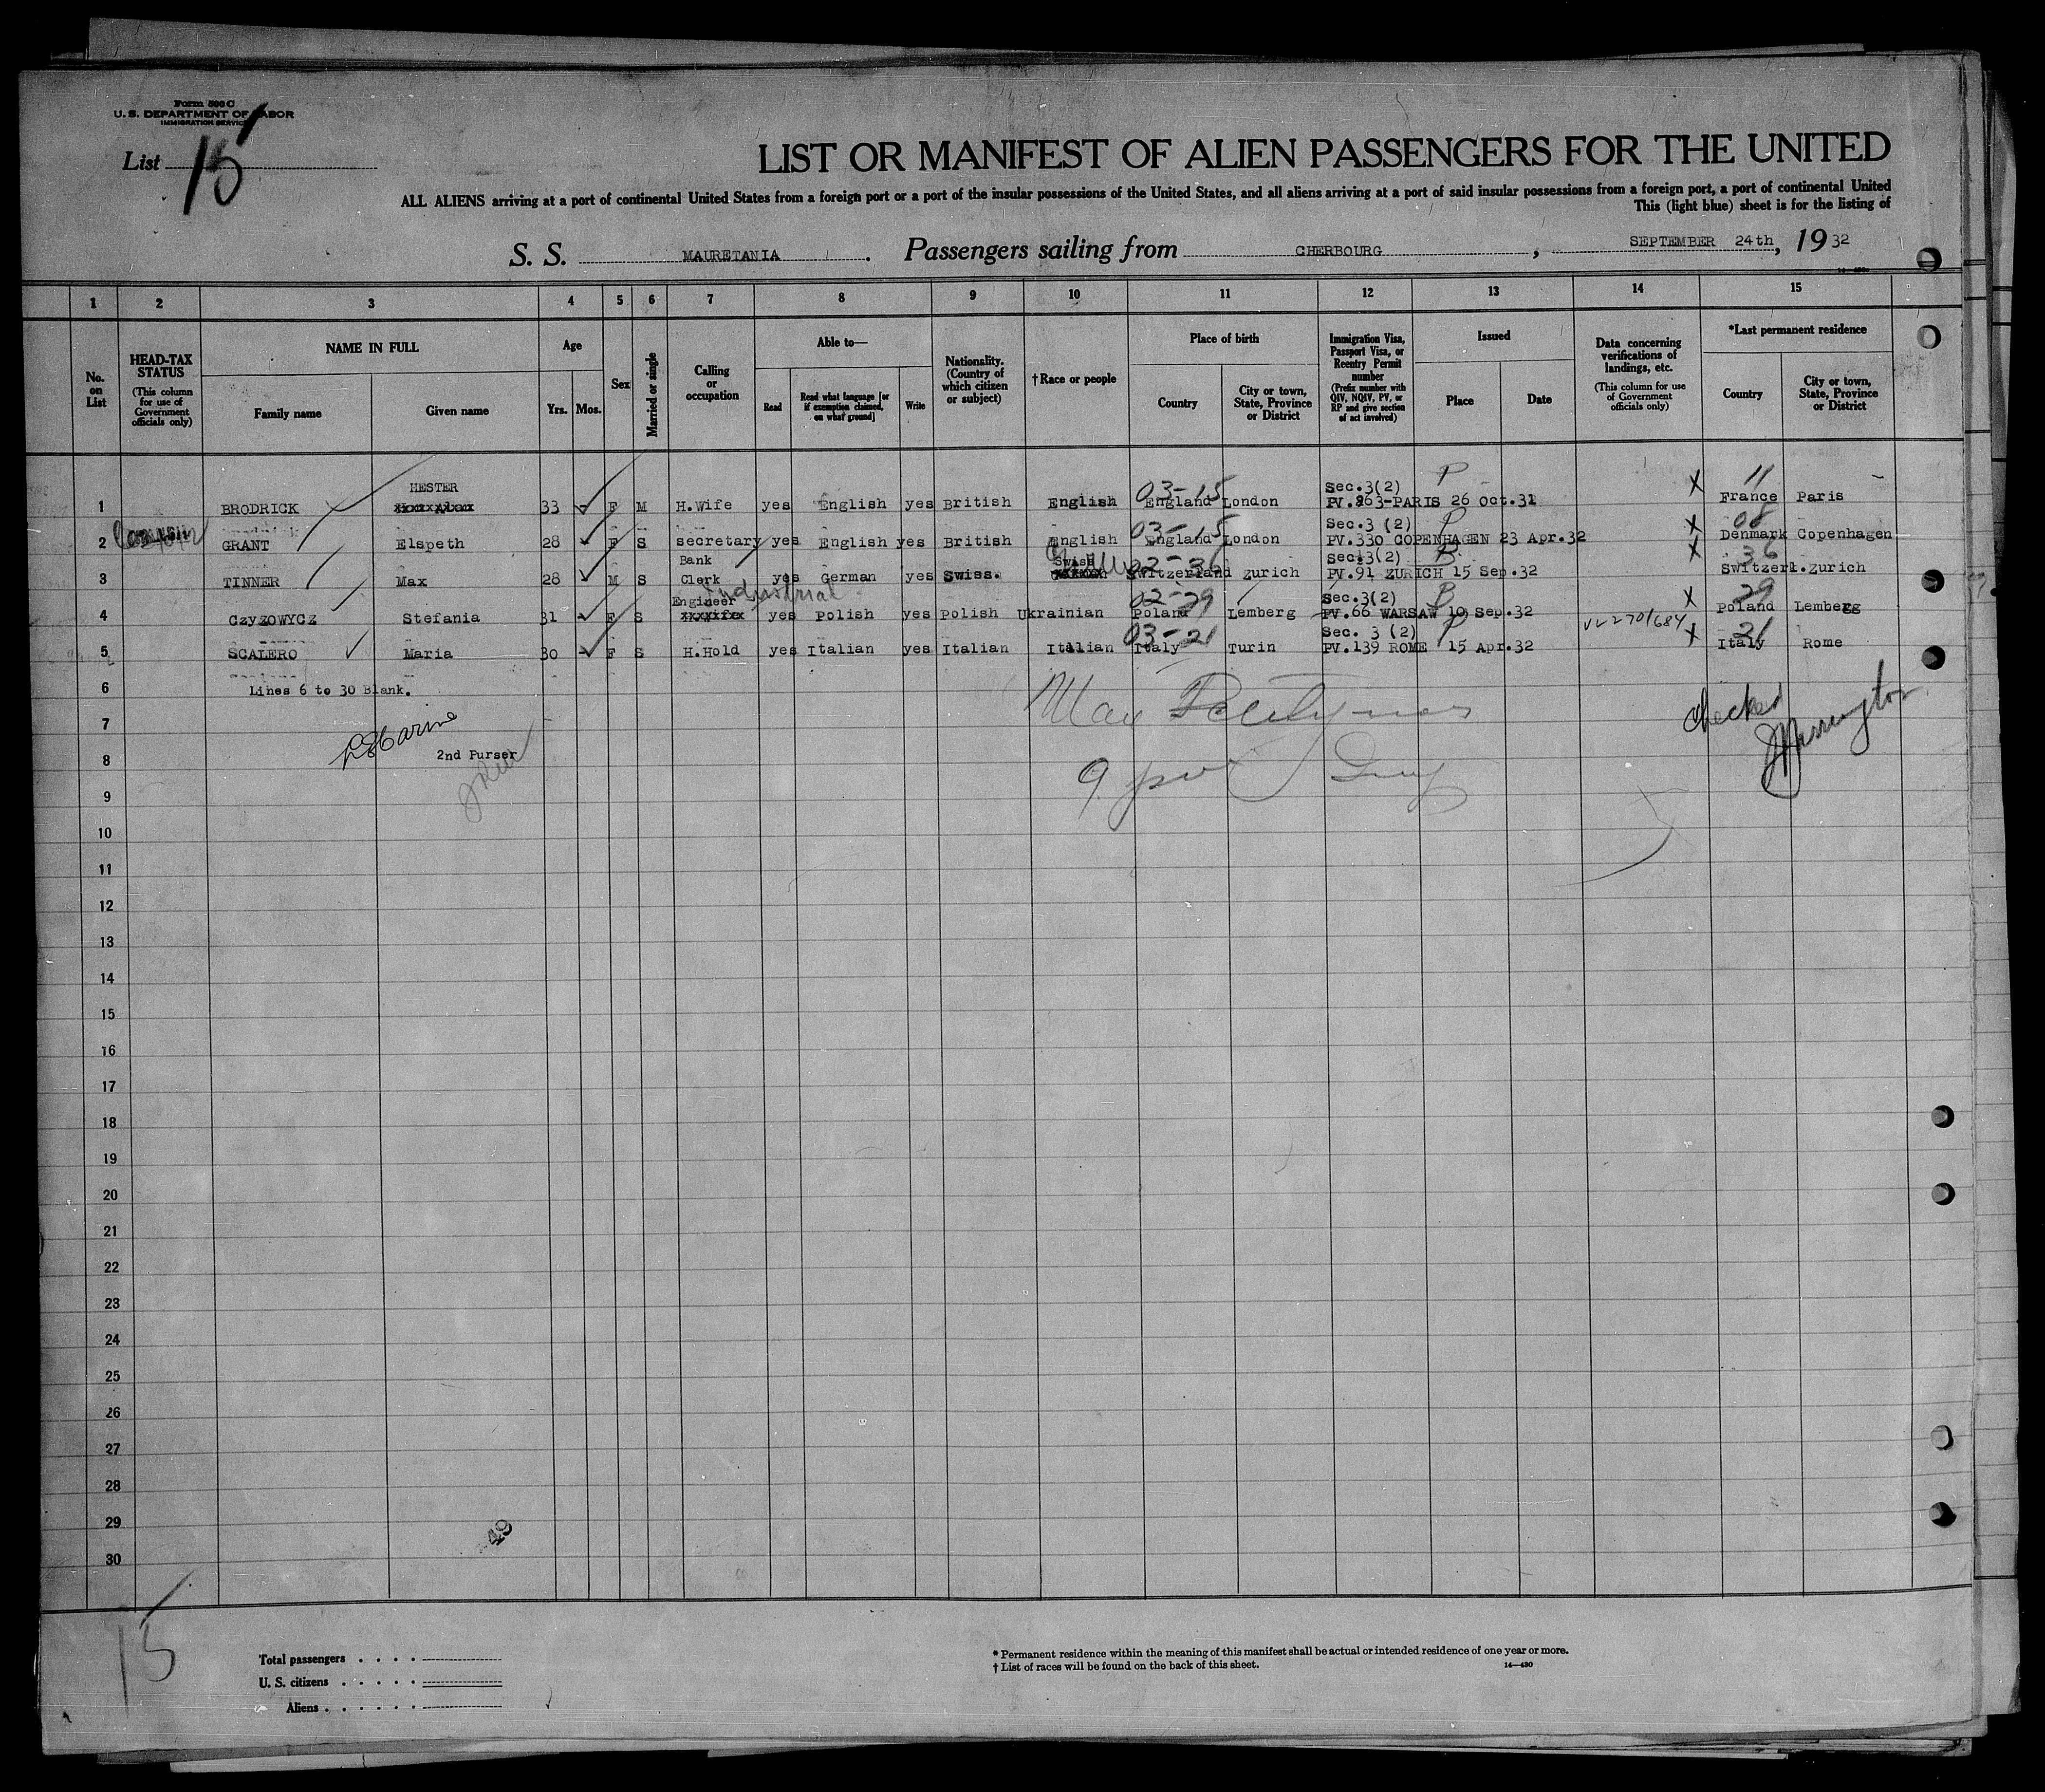 Form 500 C
U. S. DEPARTMENT OF LABOR
IMMIGRATION SERVICE
List 15
LIST OR MANIFEST OF ALIEN PASSENGERS FOR THE UNITED
ALL ALIENS arriving at a port of continental United States from a foreign port or a port of the insular possessions of the United States, and all aliens arriving at a port of said insular possessions from a foreign port, a port of continental United
This (light blue) sheet is for the listing of
S. S. MAURETANIA. Passengers sailing from CHERBOURG, SEPTEMBER 24th, 1932
1 2 3 4 5 6 7 8 9 10 11 12 13 14 15
No. on List
HEAD-TAX STATUS (This column for use of Government officials only)
NAME IN FULL
Family name
Given name
Age
Yrs. Mos.
Sex
Married or single
Calling or occupation
Able to—
Read
Read what language [or if exemption claimed, on what ground]
Write
Nationality. (Country of which citizen or subject)
†Race or people
Place of birth
Country
City or town, State, Province or District
Immigration Visa, Passport Visa, or Reentry Permit number (Prefix number with QIV, NQIV, PV, or RP and give section of act involved)
Issued
Place
Date
Data concerning verifications of landings, etc. (This column for use of Government officials only)
*Last permanent residence
Country
City or town, State, Province or District
HESTER 03-15 Sec.3(2) P X 11
1 BRODRICK 33 F M H.Wife yes English yes British English England London PV.863-PARIS 26 Oct.31 France Paris
03-15 Sec.3 (2) P X 08
2 GRANT Elspeth 28 F S secretary yes English yes British English England London PV.330 COPENHAGEN 23 Apr.32 Denmark Copenhagen
Bank Swiss 02-36 Sec.3(2) B X 36
3 TINNER Max 28 M S Clerk yes German yes Swiss. Switzerland Zurich PV.91 ZURICH 15 Sep.32 Switzerl. Zurich
Engineer Industrial 02-29 Sec.3(2) B X 29
4 CZYZOWYCZ Stefania 31 F S yes Polish yes Polish Ukrainian Poland Lemberg PV.66 WARSAW 10 Sep.32 Poland Lemberg
03-21 Sec. 3 (2) P X 21
5 SCALERO Maria 30 F S H.Hold yes Italian yes Italian Italian Italy Turin PV.139 ROME 15 Apr.32 Italy Rome
6 Lines 6 to 30 Blank.
7 checked
8 2nd Purser
9
10
11
12
13
14
15
16
17
18
19
20
21
22
23
24
25
26
27
28
29
49
30
15
Total passengers
U. S. citizens
Aliens
* Permanent residence within the meaning of this manifest shall be actual or intended residence of one year or more.
† List of races will be found on the back of this sheet.
14—430